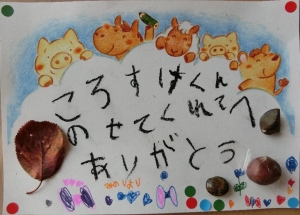 ころすけくんへ
のせてくれて
ありがとう
みのりより